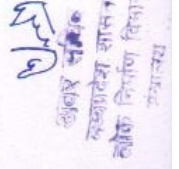 अवर सचिव
मध्यप्रदेश शासन
लोक निर्माण विभा
मंत्रालय